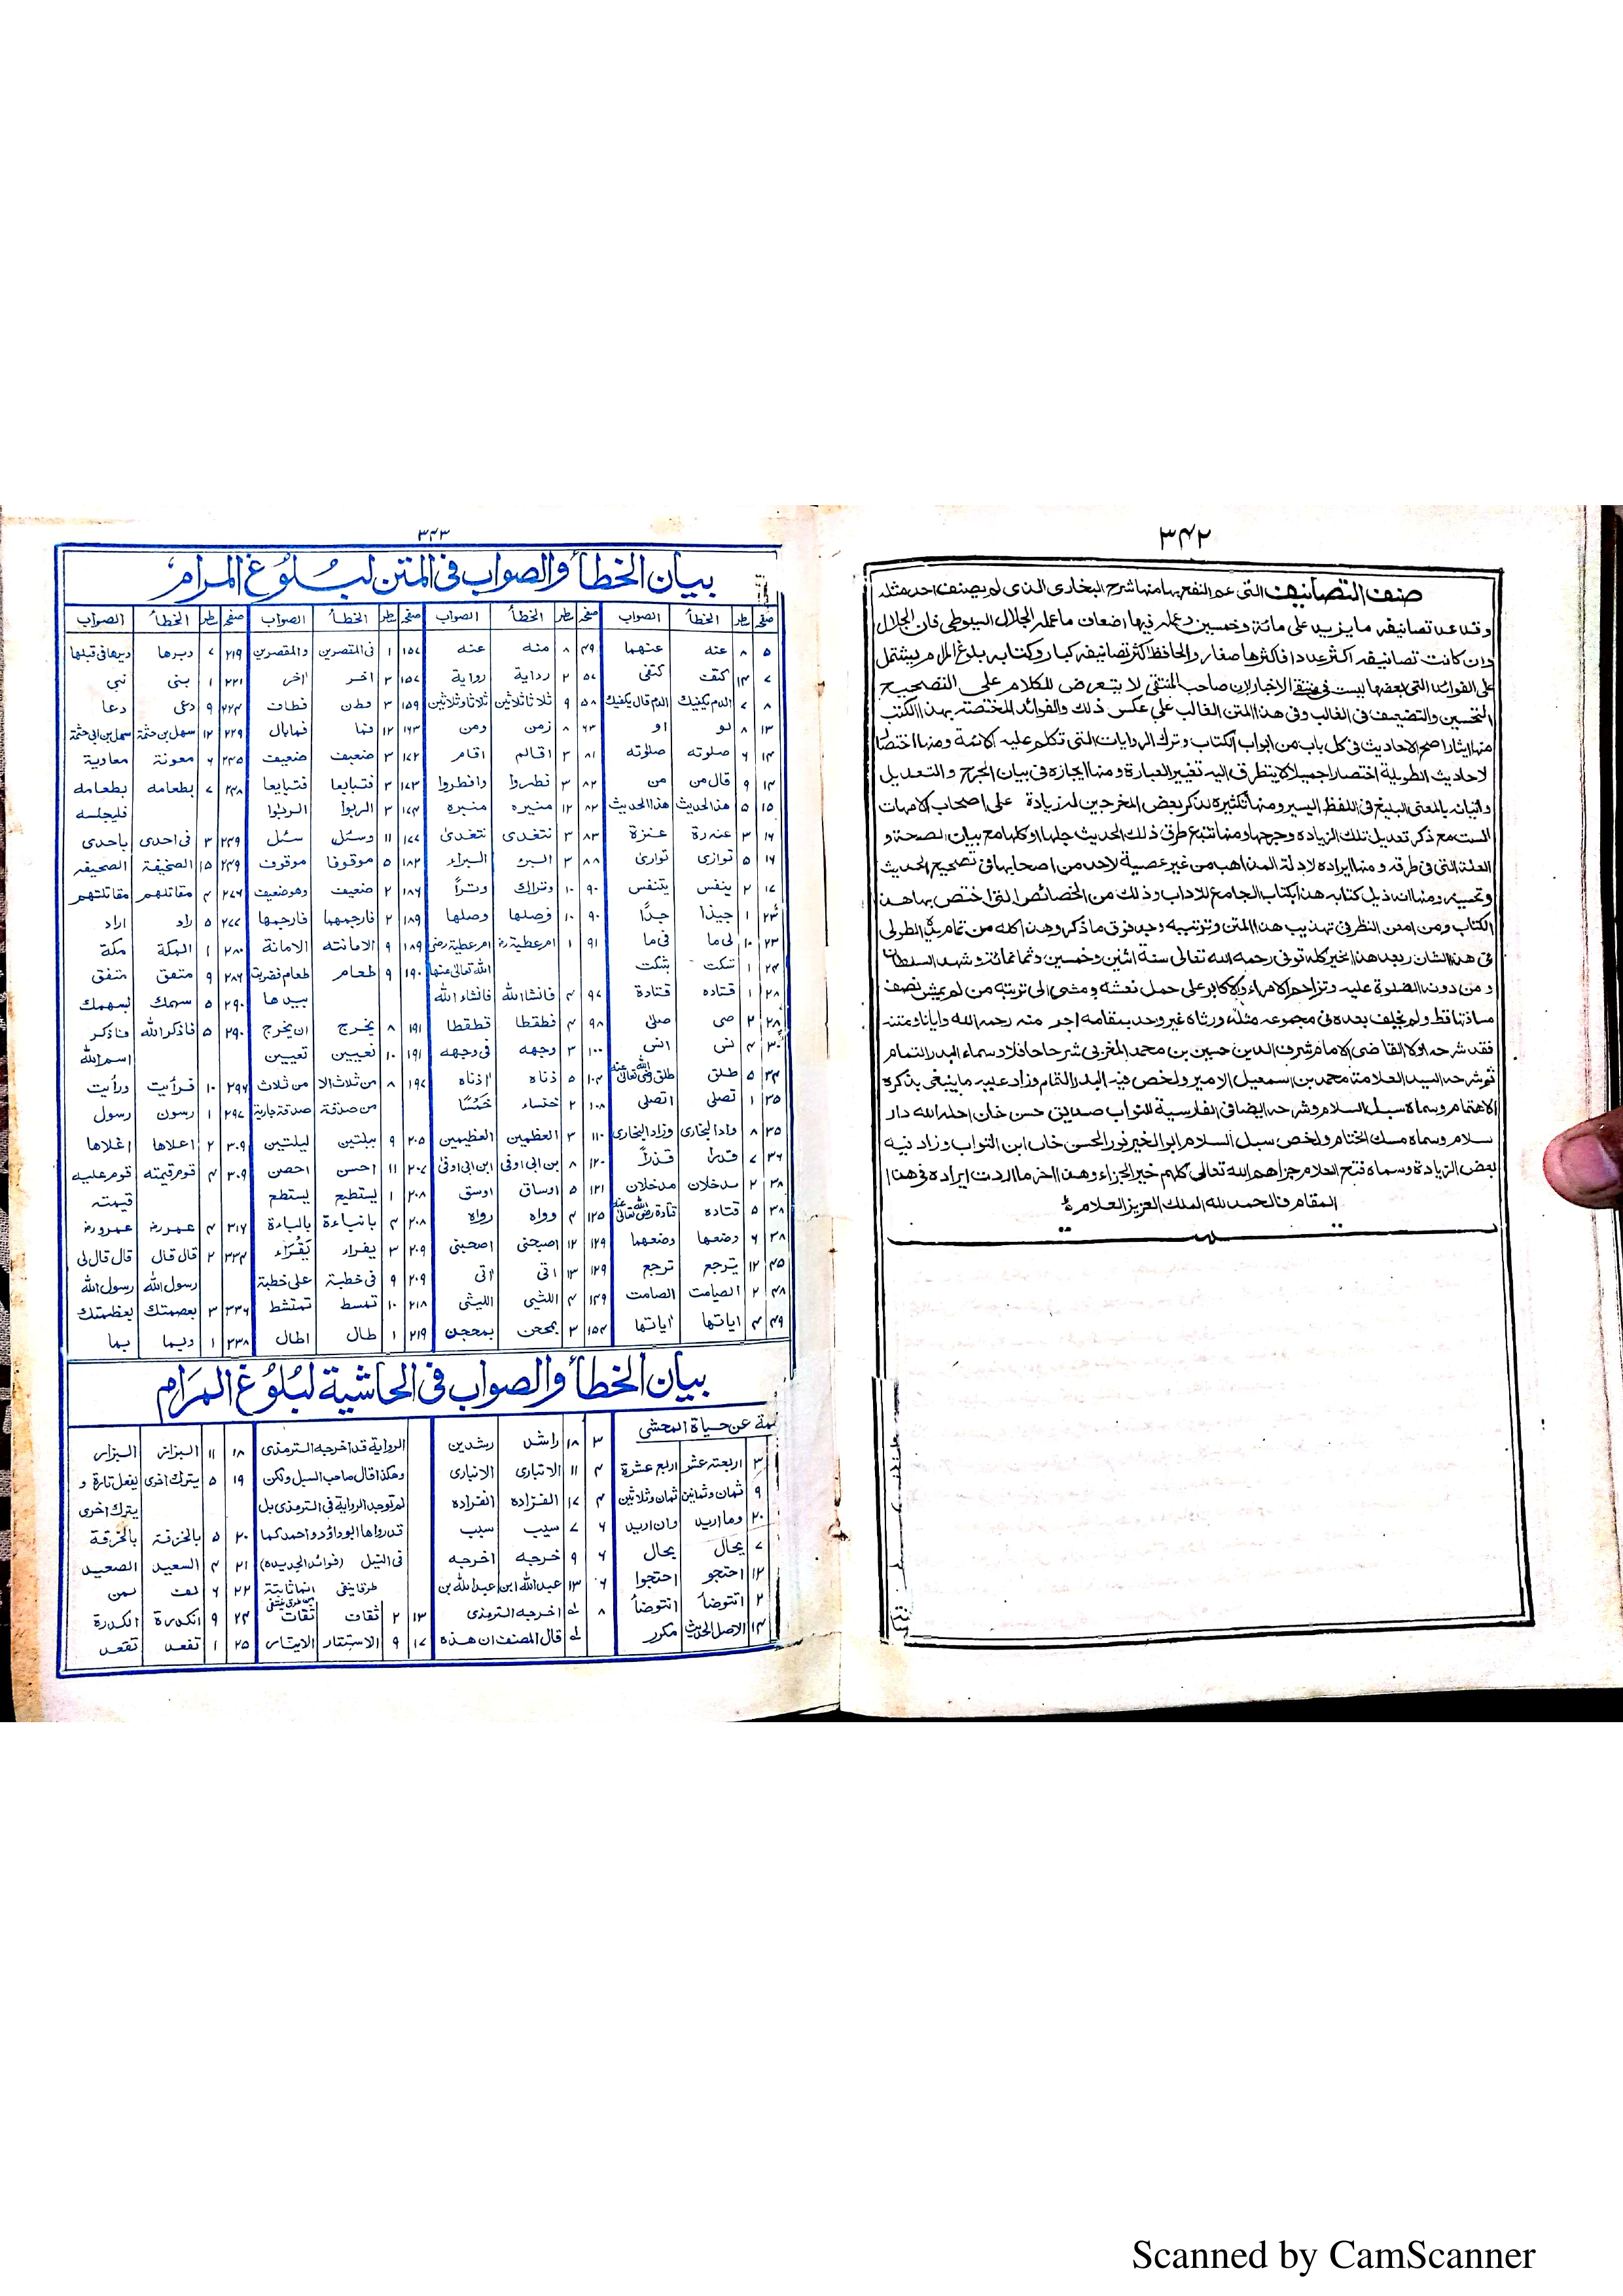 ٣٤٢
صنف التصانيف التى عم النفع بها منها شرح البخارى الذى لم يصنف احد مثله
وقد عد تصانيفه ما يزيد على مائة وخمسين وعمله فيها اضعاف ما عمله الجلال السيوطى فان الجلال
وان كانت تصانيفه اكثر عددا فاكثرها صغار والحافظ اكثر تصانيفه كبار وكتابه بلوغ المرام يشتمل
على الفوائد التى بعضها ليست فى منتقى الاخبار لان صاحب المنتقى لا يتعرض للكلام على التصحيح
والتحسين والتضعيف فى الغالب وفى هذا المتن الغالب على عكس ذلك والفوائد المختصة بهذا الكتب
منها ايثار اصح الاحاديث فى كل باب من ابواب الكتاب وترك الروايات التى تكلم عليه الائمة ومنها اختصار
لاحاديث الطويلة اختصارا جميلا لا يتطرق اليه تغيير العبارة ومنها ايجازه فى بيان الجرح والتعديل
واتيانه بالمعنى البليغ فى اللفظ اليسير ومنها تكثيره بذكر بعض المخرجين له زيادة على اصحاب الامهات
الست مع ذكر تعديل تلك الزيادة وجرحها ومنها تتبع طرق ذلك الحديث جلها او كلها مع بيان الصحة و
العلة التى فى طرقه ومنها ايراده لادلة المذاهب من غير عصبية لاحد من اصحابها فى تصحيح الحديث
ومنها انه ذيل كتابه هذا بكتاب الجامع للاداب وذلك من الخصائص التى اختص بها هذا
الكتاب ومن امعن النظر فى تهذيب هذا المتن وترتيبه وجد فوق ما ذكر وهذا كله من تمام يده الطولى
فى هذا الشان وبعد هذا الخير كله توفى رحمه الله تعالى سنة اثنين وخمسين وثمانمائة وشهد السلطان
ومن دونه الصلوة عليه وتزاحم الامراء والاكابر على حمل نعشه ومشى الى تربته من لم يمش نصف
مسافتها قط ولم يخلف بعده فى مجموعه مثله ورثاه غير واحد بمقامه اجر منه رحمه الله وايانا ومتنه
فقد شرحه اولا القاضى الامام شرف الدين حسين بن محمد المغربى شرحا حافلا وسماه البدر التمام
ثم شرحه السيد العلامة محمد بن اسمعيل الامير ولخص فيه البدر التمام وزاد عليه ما ينبغى بذكره
الاهتمام وسماه سبل السلام وشرحه ايضا فى الفارسية النواب صديق حسن خان احله الله دار
سلام وسماه مسك الختام ولخص سبل السلام ابو الخير نور الحسن خان ابن النواب وزاد فيه
بعض الزيادة وسماه فتح العلام جزاهم الله تعالى كلهم خير الجزاء وهذا اخر ما اردت ايراده فى هذا
المقام فالحمد لله الملك العزيز العلام
٣٤٣
بيان الخطأ والصواب فى المتن لبلوغ المرام
صفحه سطر الخطأ الصواب صفحه سطر الخطأ الصواب صفحه سطر الخطأ الصواب صفحه سطر الخطأ الصواب
٥ ٨ عنه عنهما ٤٩ ٨ منه عنه ١٥٧ ١ فى المتصرين والمقصرين ٢١٩ ٧ دبرها دبرها فى قبلها
٧ ١٤ كتف كتفى ٥٧ ٢ رداية رواية ١٥٧ ٢ اخر اٰخر ٢٢١ ١ بنى نبى
٨ ٧ الدم يكفيك الدم قال يكفيك ٥٨ ٩ ثلاثا ثلاثين ثلاثا وثلاثين ١٥٩ ٣ وطن فطاف ٢٢٤ ٩ دعى دعا
١٣ ٨ لو او ٦٣ ٨ زمن ومن ١٦٣ ١٢ فما فما بال ٢٢٩ ١٢ سهل بن حثمة سهل بن ابى حثمة
١٤ ٦ صلوته صلوٰته ٨١ ٣ اقالم اقام ١٧٢ ٣ ضعيف ضعيف ٢٣٥ ٦ معونة معاوية
١٤ ٩ قال من من ٨٢ ٣ فطروا وافطروا ١٧٣ ٣ فتبايعا فتبايعا ٢٣٨ ٧ بطعامه بطعامه
١٥ ٥ هذ الحديث هذا الحديث ٨٢ ١٢ منيره منبره ١٧٤ ٣ الربوا الربٰوا فليجلسه
١٦ ٣ عنه رة عنزة ٨٣ ٣ نتغدى نتغدىٰ ١٧٧ ١١ وسئل سئل ٢٣٩ ٣ فى احدى باحدى
١٦ ٥ توازى توارىٰ ٨٨ ٢ البر البراء ١٨٢ ٥ موقوفا موقوف ٢٤٩ ١٥ الصخيفة الصحيفه
١٧ ٢ ينفس يتنفس ٩٠ ١٠ وتراك وتراً ١٨٦ ٢ ضعيف وهو ضعيف ٢٧٦ ٤ مقاتلهم مقاتلتهم
٢٣ ١ جيذا جدًا ٩٠ ١٠ فصلها وصلها ١٨٩ ٢ فارجمهما فارجمها ٢٧٧ ٥ راد اراد
٢٣ ١٠ لى ما فى ما ٩١ ١ ام عطية رض ام عطية رضى ١٨٩ ٩ الامانته الامانة ٢٨٠ ١ المكة مكة
٢٤ ١ تنكت الله تعالىٰ عنها ١٩٠ ٩ طعام طعام فضربت ٢٨٦ ٩ متعق متفق
٢٨ ١ قتاده قتادة ٩٧ ٤ فانشا الله فانشاء الله بيدها ٢٩٠ ٥ سهمك لسهمك
٢٨ ٢ صى صلىٰ ٩٨ ٤ فطقطا قطقطا ١٩١ ٨ يخرج ان يخرج ٢٩٠ ٥ فاذكر الله فاذكر
٣٠ ٤ نس انس ١٠٠ ٣ وجهه فى وجهه ١٩١ ١٠ نعيين تعيين اسم الله
٣٤ ٥ طلق ١٠٢ ٥ ذناه اذناه ١٩٧ ٨ من ثلاث الا من ثلاث ٢٩٦ ١٠ فرأيت ورأيت
٣٥ ١ تصلى اتصلى ١٠٨ ٢ خنساء خَمْسًا من صدقة صدقة جارية ٢٩٧ ١ رسون رسول
٣٥ ٨ واد البخارى وزاد البخارى ١١٠ ٣ العظمين العظيمين ٢٠٥ ٩ ببلتين ليلتين ٣٠٩ ٢ اعلاها اغلاها
٣٦ ٧ قدر قذراً ١٢٠ ٨ بن ابى اوفى ابن ابى اوفىٰ ٢٠٧ ١١ احسن احصن ٣٠٩ ٤ قوم قيمته قوم عليه
٣٨ ٢ سدخلان مدخلان ١٢١ ٥ اوساق اوسق ٢٠٨ ١ يستطيع يستطع قيمته
٣٨ ٥ قتاده ١٢٥ ٤ وواه رواه ٢٠٨ ٤ بانباءة بالباءة ٣١٧ ٤ عمر رض عمرو رض
٣٨ ٦ وضعها وضعهما ١٢٩ ١٢ اصبحنى اصحبنى ٢٠٩ ٣ يفراء يَقْرَاء ٣٣٤ ٢ قال قال قال قال لى
٤٥ ١٢ يترجع ترجع ١٢٩ ١٣ اتى اٰتى ٢٠٩ ٩ فى خطبة على خطبة رسول الله رسول الله
٤٨ ٢ الصيامت الصامت ١٤٩ ٤ اللثيى الليثى ٢١٨ ١٠ تمسط تمتشط ٣٣٦ ٣ بعصمتك بعظمتك
٤٩ ٤ اياتها اٰياتها ١٥٤ ٣ بمحجن ٢١٩ ١ طال اطال ٣٣٨ ١ وبما بما
بيان الخطأ والصواب فى الحاشية لبلوغ المرام
عن حياة المحشى ٣ ١٨ راشد رشدين الرواية قد اخرجه الترمذى ١٨ ١١ البزائر البزار
٣ اربعته عشر اربع عشرة ٤ ١١ الانبارى الانبارى وهكذا قال صاحب السبل ولكن ١٩ ٥ يترك اخرى يفعل تارة و
٩ ثمان وثمانين ثمان وثلاثين ٤ ١٧ الفزاده انفراده لم توجد الرواية فى الترمذى بل يترك اخرى
٢٠ وما اريد وان اريد ٦ ٧ سيب سبب قد رواها ابوداؤد واحمد كما ٢٠ ٥ بالخزفة بالخرقة
٧ يحال يحال ٦ ٩ خرجه اخرجه فى النيل (فوائد الجديده) ٢١ ٤ السعيد الصعيد
١٢ احتجو احتجوا ٦ ١٣ عبد الله ابن عبد الله بن ٢٢ ٦ لمن
٢ انتوضا انتوضأ ٨ اخرجه الترمذى ١٣ ٢ ثقات ثقات ٢٤ ٩ انكدرة الكدرة
١٤ الاصل الحديث مكرر قال المصنف ان هذه ١٧ ٩ الاستقار الايتار ٢٥ ١ تفعد تقعد
Scanned by CamScanner